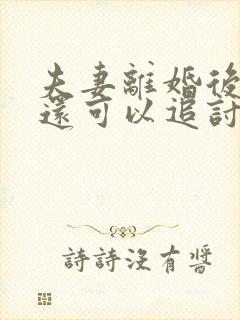 夫妻離婚後
還可以追討
詩詩沒有醬